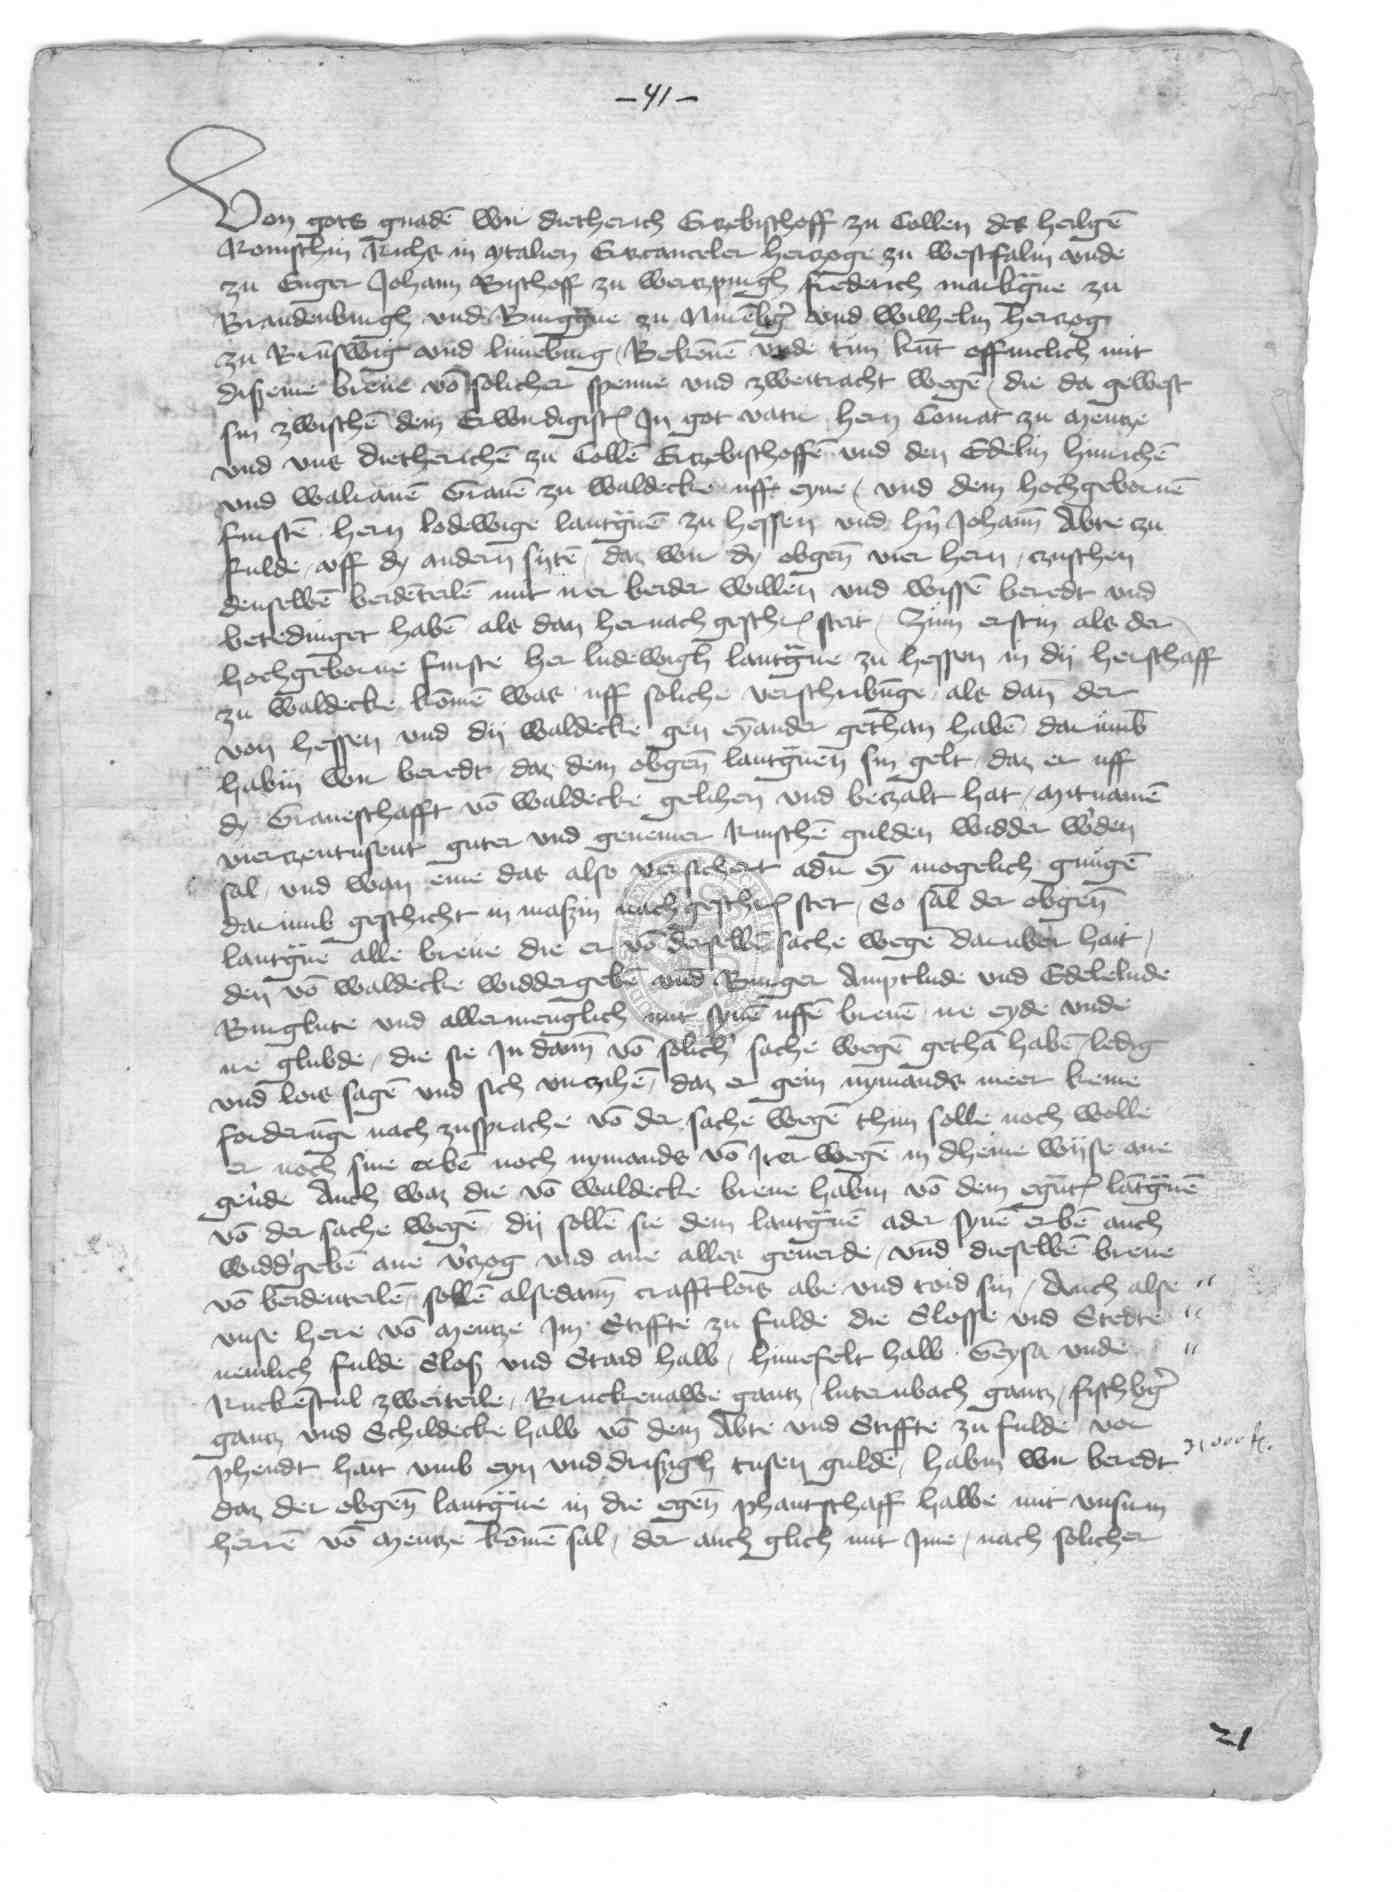 - 41 -
Von gots gnadē wir dietherich Ertzebischoff zu Collen des heilgē
Romischin Richs in ytalien Ertzcanceler hertzoge zu westfalin vnde
zu Enger Johann Bischoff zu wertzpurgh friederich markg̃ue zu
Brandenburgh vnd Burgg̃ue zu Nurēbg̃ vnd wilhelm hertzog
zu Brūswig vnd lunēburg Bekēnē vnde tun kūt offinclich mit
disseme brieue vō solicher spenne vnd zweitracht wegē die da gewest
sin zwischē dem Erwirdigistē In got vatir hern Conrat zu mentze
vnd vns dietherichē zu Collē Ertzebischoffē vnd den Edelin hinrichē
vnd walrauē Grauē zu waldecke uff eyne / vnd dem hochgebornē
furstē hern lodewige lantg̃uē zu hessen vnd hñ Johann Abte zu
fulde / uff dy andern sytē / daz wir dy obgeñ vier hern / czuschen
denselbē beidēteilē mit irer beider willen vnd wissē beredt vnd
betedinget habē als dan hernach geschrē steit / Zum erstin als der
hochgeborne furste her ludewigh lantg̃ue zu hessen in dij herschaff
zu waldecke kōmē was uff soliche verschribūge als dañ der
von hessen vnd dij waldecke gen eynander gethan habē darūmb
habin wir beredt / daz dem obgeñ lantg̃uen sin gelt / daz er uff
dy Graueschafft vō waldecke gelihen vnd betzalt hat / mitnamē
viertzentusent guter vnd genemer Rinschē gulden widder w'den
sal / vnd wan eme das also versichert adir eȳ mogelich gnugē
darumb geschicht in maszin nach geschrē stet / So sal der obgeñ
lantg̃ue alle breue die er vō derselbē sache wegē daruber hait /
den vō waldecke widdergebē vnd Burger Amptlude vnd Edelelude
Burglute vnd allermenglich mit synē uffē breuē ire eyde vnde
ire glubde / die sie Jn dann vō solich' sache wegē gethā habē / ledig
vnd lois sagē vnd sich virtzihē / daz er gein nymands meer keine
forderūge nach zusprache vō der sache wegē thun solle noch wolle
er noch sine erbē noch nymands vō Irer wegē in dheine wijse ane
geu'de Auch waz die vō waldecke breue habin vō dem egūtē lātg̃uē
vō der sache wegē dij sollē sie dem lantg̃uē ader synē erbē auch
widd'gebē ane v'tzog vnd ane alles geuerde / vnd dieselbē breue
vō beidenteilē sollē alsedann crafftlois abe vnd toid sin / Auch alse "
vnse here vō mentze Im Stiffte zu fulde die Slosse vnd Stedte "
nemlich fulde Slosz vnd Staid halb / hunefelt halb Geysa vnde "
Rückēstul zweiteile / Bruckenauwe gantz / luternbach gantz / fischbg̃
gantz vnd Schildecke halb vō dem Abte vnd Stiffte zu fulde ver
phendt hait vmb eyn vnd driszigh tusen guldē / habin wir beredt 31000 fl.
daz der obgeñ lantg̃ue in die egeñ phantschaff halbe mit vnsirm
herrē vō mentze kōmē sal / der auch glich mit Jme / nach solicher
21